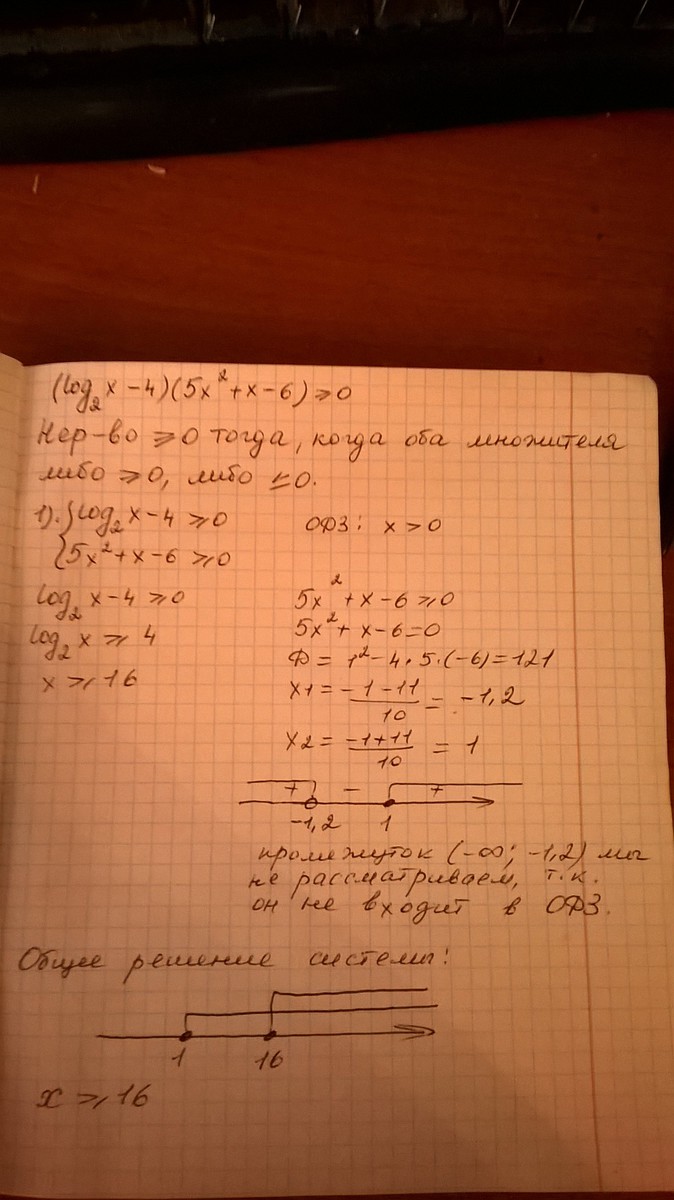 (log₂x-4)(5x²+x-6)≥0
Нер-во ≥0 тогда, когда оба множителя
либо ≥0, либо ≤0.
1). { log₂x-4≥0
ОДЗ: x>0
{ 5x²+x-6≥0
log₂x-4≥0
log₂x≥4
x≥16
5x²+x-6≥0
5x²+x-6=0
D=1²-4·5·(-6)=121
x1=(-1-11)/10=-1,2
x2=(-1+11)/10=1
+ - +
-1,2 1
промежуток (-∞; -1,2) мы
не рассматриваем, т.к.
он не входит в ОДЗ.
Общее решение системы:
1 16
x≥16